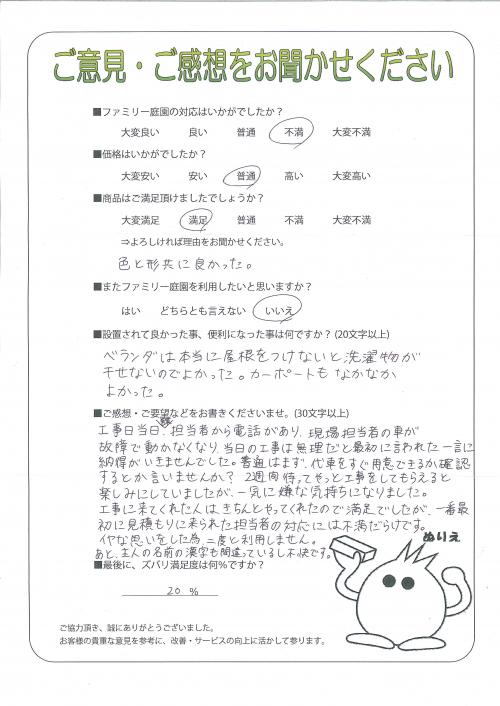 ご意見・ご感想をお聞かせください
■ファミリー庭園の対応はいかがでしたか？
大変良い 良い 普通 不満 大変不満
■価格はいかがでしたか？
大変安い 安い 普通 高い 大変高い
■商品はご満足頂けましたでしょうか？
大変満足 満足 普通 不満 大変不満
⇒よろしければ理由をお聞かせください。
色と形共に良かった。
■またファミリー庭園を利用したいと思いますか？
はい どちらとも言えない いいえ
■設置されて良かった事、便利になった事は何ですか？(20文字以上)
ベランダは本当に屋根をつけないと洗濯物が
干せないのでよかった。カーポートもなかなか
よかった。
■ご感想・ご要望などをお書きくださいませ。(30文字以上)
工事日当日、担当者から電話があり、現場担当者の車が
故障で動かなくなり、当日の工事は無理だと最初に言われた一言に
納得がいきませんでした。普通はまず、代車をすぐ用意できるか確認
するとか言いませんか？ 2週間待ってやっと工事をしてもらえると
楽しみにしていましたが、一気に嫌な気持ちになりました。
工事に来てくれた人は、きちんとやってくれたので満足でしたが、一番最
初に見積もりに来られた担当者の対応には不満だらけです。
イヤな思いをした為、二度と利用しません。
あと、主人の名前の漢字も間違っているし不快です。
■最後に、ズバリ満足度は何％ですか？
20 %
ぬりえ
ご協力頂き、誠にありがとうございました。
お客様の貴重な意見を参考に、改善・サービスの向上に活かして参ります。